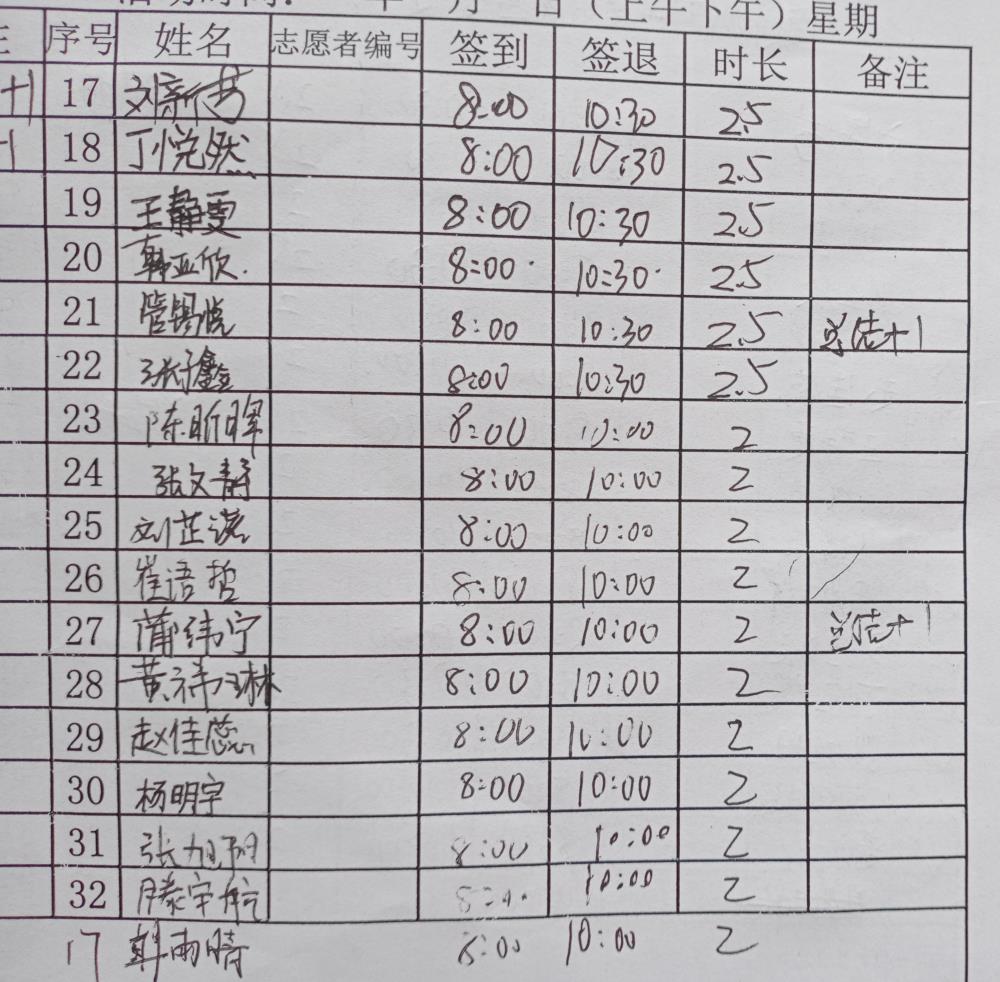 活动时间: 年 月 日（上午下午）星期
注 序号 姓名 志愿者编号 签到 签退 时长 备注
+1 17 刘新茜 8:00 10:30 2.5
18 丁悦然 8:00 10:30 2.5
19 王静雯 8:00 10:30 2.5
20 韩亚欣 8:00 10:30 2.5
21 管锡悦 8:00 10:30 2.5 总结+1
22 张鑫 8:00 10:30 2.5
23 陈昕晖 8:00 10:00 2
24 张文静 8:00 10:00 2
25 刘芷诺 8:00 10:00 2
26 崔语哲 8:00 10:00 2
27 蒲纬宁 8:00 10:00 2 总结+1
28 黄祎林 8:00 10:00 2
29 赵佳蕊 8:00 10:00 2
30 杨明宇 8:00 10:00 2
31 张旭阳 8:00 10:00 2
32 滕宇航 8:00 10:00 2
17 韩雨晴 8:00 10:00 2